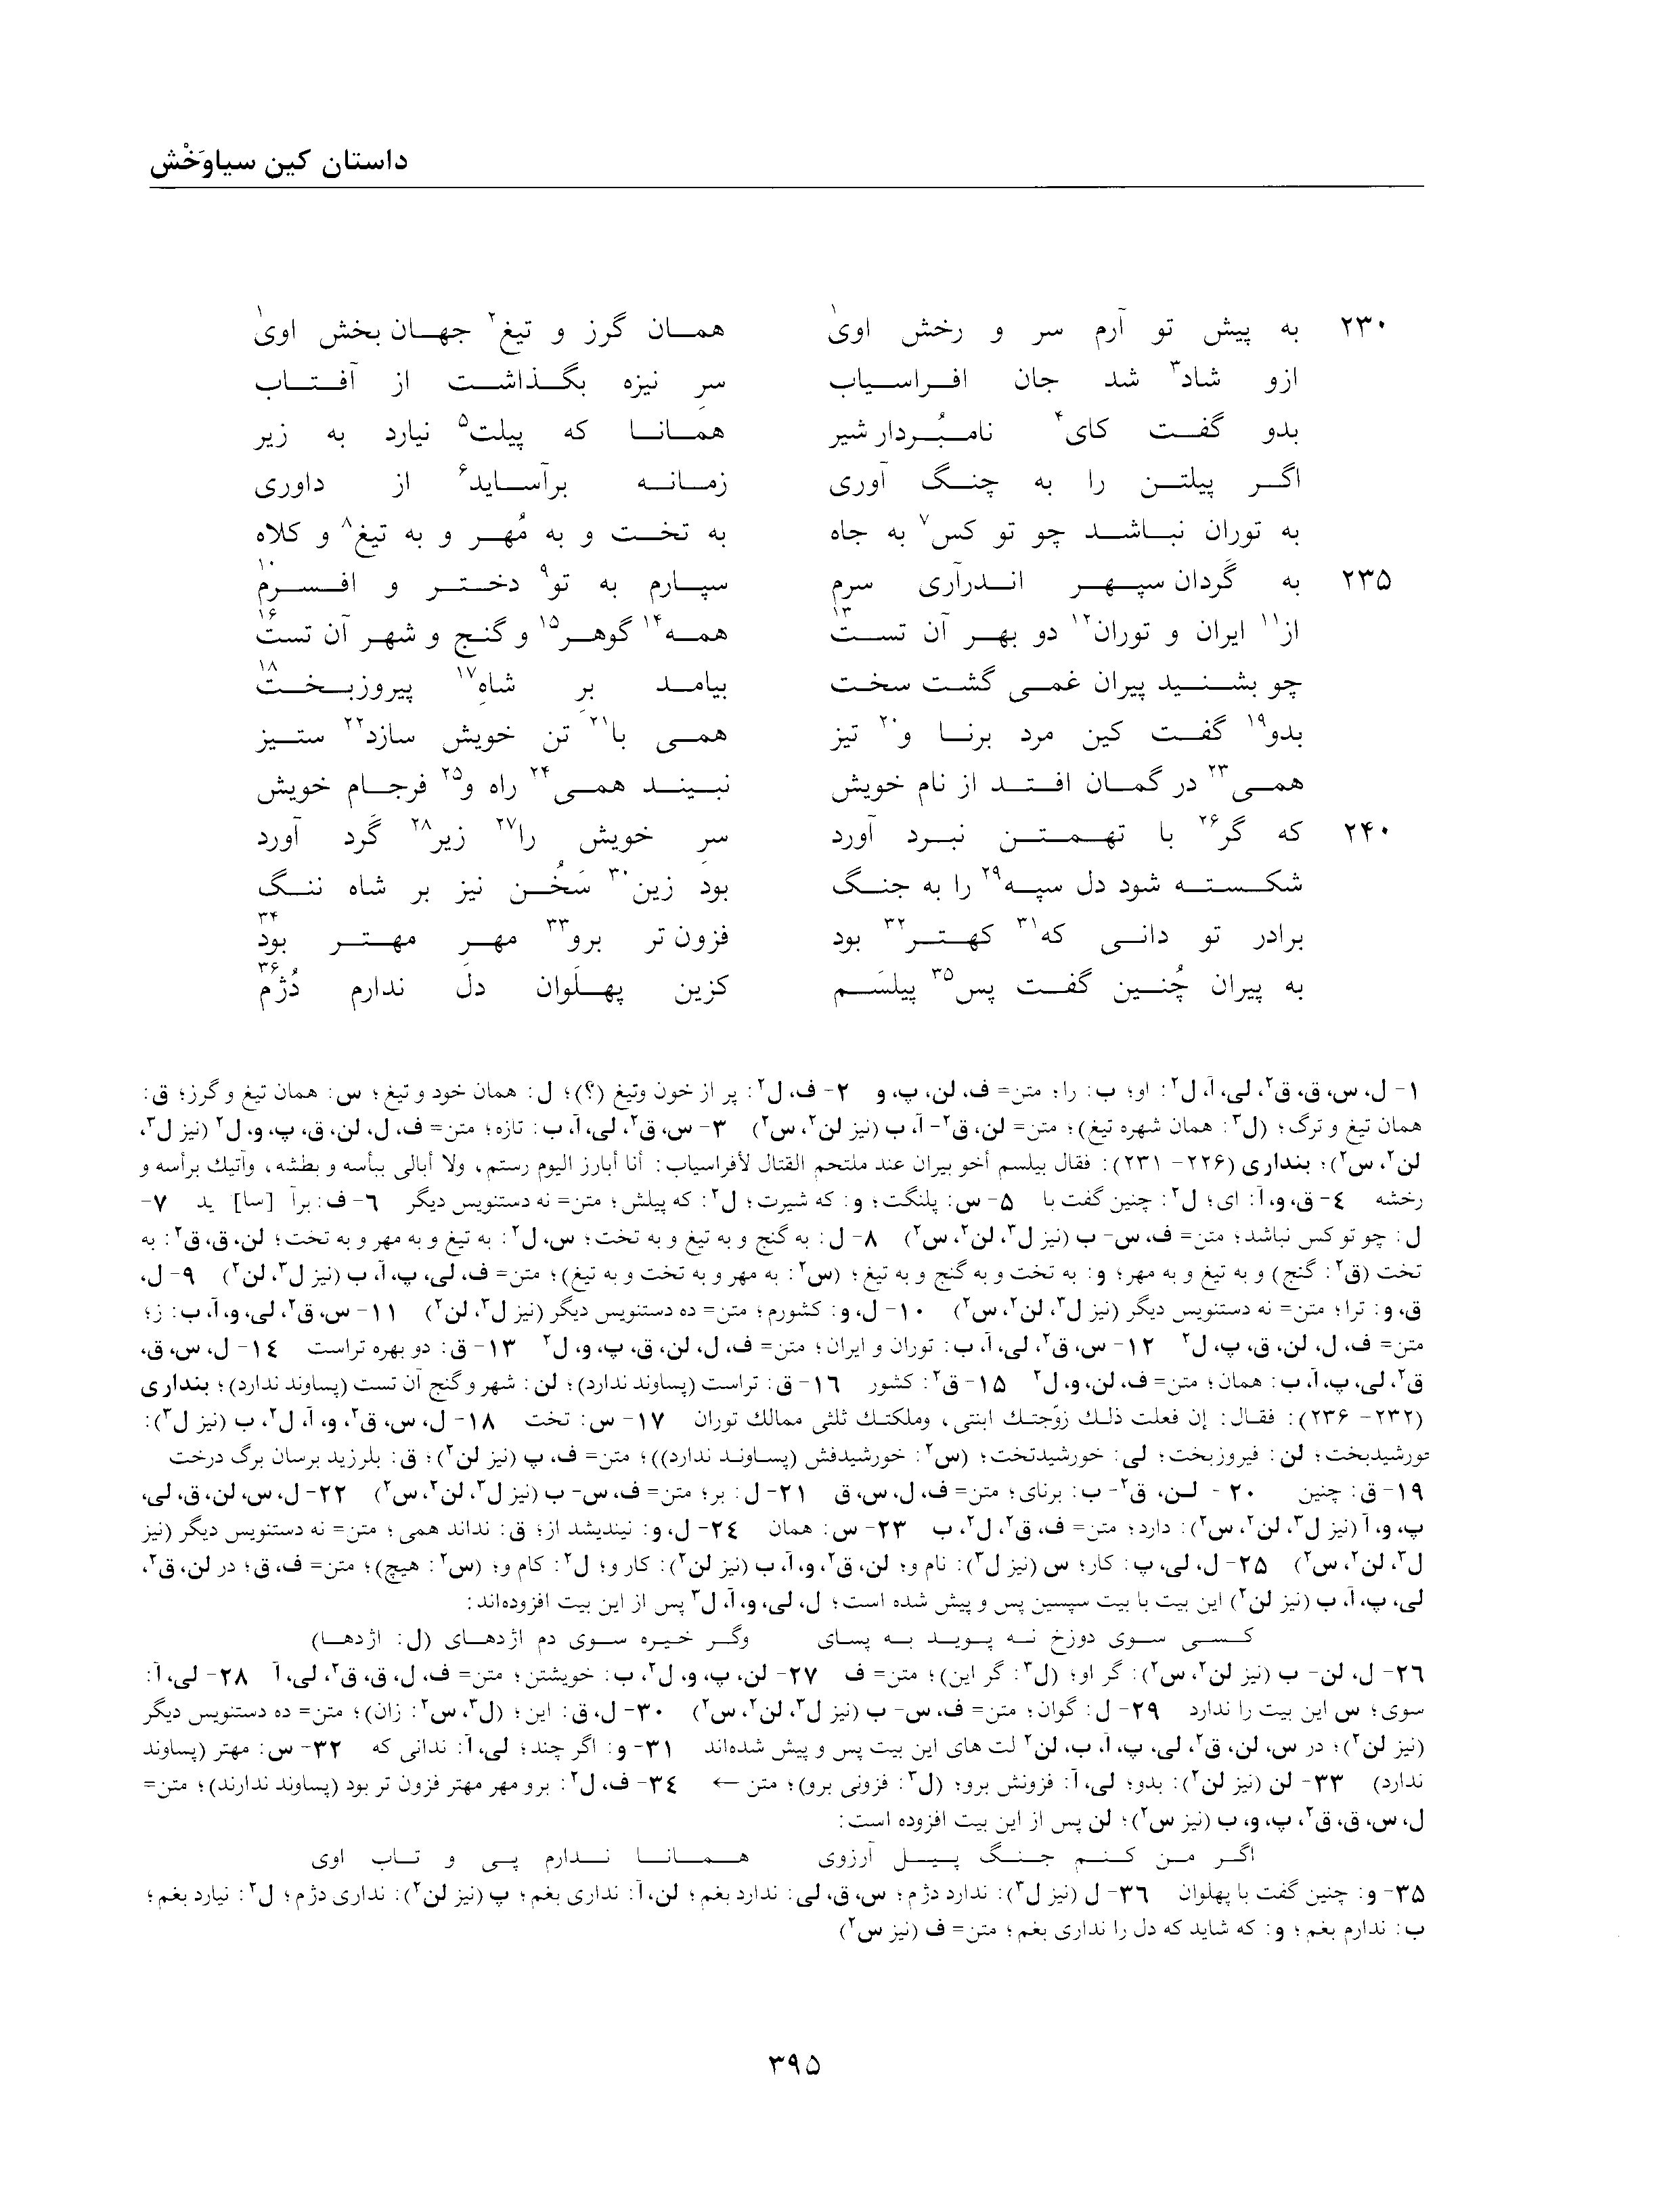 داستان کین سیاوَخْش
۲۳۰ به پیش تو آرم سر و رخش اوی۱ همان گرز و تیغ۲ جهان‌بخش اوی۱
ازو شاد۳ شد جان افراسیاب سرِ نیزه بگذاشت از آفتاب
بدو گفت کای۴ نامبُردار شیر همانا که پیلت۵ نیارد به زیر
اگر پیلتن را به چنگ آوری زمانه برآساید۶ از داوری
به توران نباشد چو تو کس۷ به جاه به تخت و به مُهر و به تیغ۸ و کلاه
۲۳۵ به گَردان سپهر اندرآری سرم سپارم به تو۹ دختر و افسرم۱۰
از۱۱ ایران و توران۱۲ دو بهر آن تست۱۳ همه۱۴ گوهر۱۵ و گنج و شهر آن تست۱۶
چو بشنید پیران غمی گشت سخت بیامد برِ شاهِ۱۷ پیروزبخت۱۸
بدو۱۹ گفت کین مرد برنا و۲۰ تیز همی با۲۱ تن خویش سازد۲۲ ستیز
همی۲۳ در گمان افتد از نام خویش نبیند همی۲۴ راه و۲۵ فرجام خویش
۲۴۰ که گر۲۶ با تهمتن نبرد آورد سرِ خویش را۲۷ زیر۲۸ گَرد آورد
شکسته شود دل سپه۲۹ را به جنگ بود زین۳۰ سَخُن نیز بر شاه ننگ
برادر تو دانی که۳۱ کهتر۳۲ بود فزون‌تر برو۳۳ مهرِ مهتر بود۳۴
به پیران چُنین گفت پس۳۵ پیلسَم کزین پهلَوان دل ندارم دُژم۳۶
۱- ل، س، ق، ق۲، لی، آ، ل۲: او؛ ب: را؛ متن= ف، لن، پ، و ۲- ف، ل۲: پر از خون وتیغ (؟)؛ ل: همان خود و تیغ؛ س: همان تیغ و گرز؛ ق:
همان تیغ و ترگ؛ (ل۳: همان شهره تیغ)؛ متن= لن، ق۲- آ، ب (نیز لن۲، س۲) ۳- س، ق۲، لی، آ، ب: تازه؛ متن= ف، ل، لن، ق، پ، و، ل۲ (نیز ل۳،
لن۲، س۲)؛ بنداری (۲۲۶- ۲۳۱): فقال بیلسم أخو بیران عند ملتحم القتال لأفراسیاب: أنا أبارز الیوم رستم، ولا أبالی ببأسه و بطشه، وآتیك برأسه و
رخشه ۴- ق، و، آ: ای؛ ل۲: چنین گفت با ۵- س: پلنگت؛ و: که شیرت؛ ل۲: که پیلش؛ متن= نه دستنویس دیگر ۶- ف: برآ [سا] ید ۷-
ل: چو تو کس نباشد؛ متن= ف، س- ب (نیز ل۳، لن۲، س۲) ۸- ل: به گنج و به تیغ و به تخت؛ س، ل۲: به تیغ و به مهر و به تخت؛ لن، ق، ق۲: به
تخت (ق۲: گنج) و به تیغ و به مهر؛ و: به تخت و به گنج و به تیغ؛ (س۲: به مهر و به تخت و به تیغ)؛ متن= ف، لی، پ، آ، ب (نیز ل۳، لن۲) ۹- ل،
ق، و: ترا؛ متن= نه دستنویس دیگر (نیز ل۳، لن۲، س۲) ۱۰- ل، و: کشورم؛ متن= ده دستنویس دیگر (نیز ل۳، لن۲) ۱۱- س، ق۲، لی، و، آ، ب: ز؛
متن= ف، ل، لن، ق، پ، ل۲ ۱۲- س، ق۲، لی، آ، ب: توران و ایران؛ متن= ف، ل، لن، ق، پ، و، ل۲ ۱۳- ق: دو بهره تراست ۱۴- ل، س، ق،
ق۲، لی، پ، آ، ب: همان؛ متن= ف، لن، و، ل۲ ۱۵- ق۲: کشور ۱۶- ق: تراست (پساوند ندارد)؛ لن: شهر و گنج آن تست (پساوند ندارد)؛ بنداری
(۲۳۲- ۲۳۶): فقال: إن فعلت ذلك زوّجتك ابنتی، وملکتك ثلثی ممالك توران ۱۷- س: تخت ۱۸- ل، س، ق۲، و، آ، ل۲، ب (نیز ل۳):
خورشیدبخت؛ لن: فیروزبخت؛ لی: خورشیدتخت؛ (س۲: خورشیدفش (پساوند ندارد))؛ متن= ف، پ (نیز لن۲)؛ ق: بلرزید برسان برگ درخت
۱۹- ق: چنین ۲۰ - لن، ق۲- ب: برنای؛ متن= ف، ل، س، ق ۲۱- ل: بر؛ متن= ف، س- ب (نیز ل۳، لن۲، س۲) ۲۲- ل، س، لن، ق، لی،
پ، و، آ (نیز ل۳، لن۲، س۲): دارد؛ متن= ف، ق۲، ل۲، ب ۲۳- س: همان ۲۴- ل، و: نیندیشد از؛ ق: نداند همی؛ متن= نه دستنویس دیگر (نیز
ل۳، لن۲، س۲) ۲۵- ل، لی، پ: کار؛ س (نیز ل۳): نام و؛ لن، ق۲، و، آ، ب (نیز لن۲): کار و؛ ل۲: کام و؛ (س۲: هیچ)؛ متن= ف، ق؛ در لن، ق۲،
لی، پ، آ، ب (نیز لن۲) این بیت با بیت سپسین پس و پیش شده است؛ ل، لی، و، آ، ل۳ پس از این بیت افزوده‌اند:
کسی سوی دوزخ نه پوید به پای وگر خیره سوی دم اژدهای (ل: اژدها)
۲۶- ل، لن- ب (نیز لن۲، س۲): گر او؛ (ل۳: گر این)؛ متن= ف ۲۷- لن، پ، و، ل۲، ب: خویشتن؛ متن= ف، ل، ق، ق۲، لی، آ ۲۸- لی، آ:
سوی؛ س این بیت را ندارد ۲۹- ل: گوان؛ متن= ف، س- ب (نیز ل۳، لن۲، س۲) ۳۰- ل، ق: این؛ (ل۳، س۲: زان)؛ متن= ده دستنویس دیگر
(نیز لن۲)؛ در س، لن، ق۲، لی، پ، آ، ب، لن۲ لت های این بیت پس و پیش شده‌اند ۳۱- و: اگر چند؛ لی، آ: ندانی که ۳۲- س: مهتر (پساوند
ندارد) ۳۳- لن (نیز لن۲): بدو؛ لی، آ: فزونش برو؛ (ل۳: فزونی برو)؛ متن ← ۳۴- ف، ل۲: برو مهر مهتر فزون تر بود (پساوند ندارند)؛ متن=
ل، س، ق، ق۲، پ، و، ب (نیز س۲)؛ لن پس از این بیت افزوده است:
اگر من کنم جنگ پیل آرزوی همانا ندارم پی و تاب اوی
۳۵- و: چنین گفت با پهلوان ۳۶- ل (نیز ل۳): ندارد دژم؛ س، ق، لی: ندارد بغم؛ لن، آ: نداری بغم؛ پ (نیز لن۲): نداری دژم؛ ل۲: نیارد بغم؛
ب: ندارم بغم؛ و: که شاید که دل را نداری بغم؛ متن= ف (نیز س۲)
۳۹۵